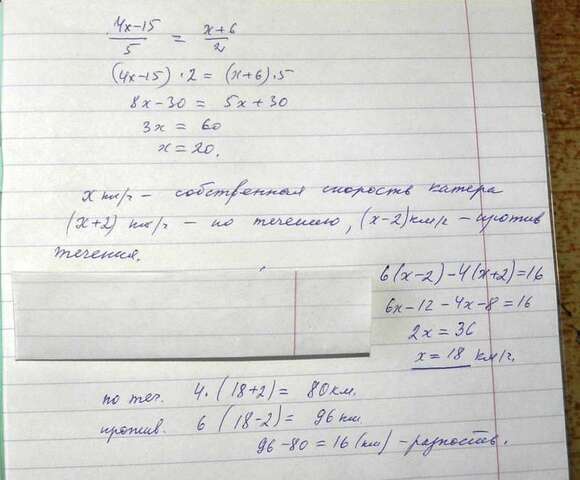 (4x-15)/5 = (x+6)/2
(4x-15)·2 = (x+6)·5
8x-30 = 5x+30
3x = 60
x = 20.
x км/ч - собственная скорость катера
(x+2) км/ч - по течению, (x-2) км/ч - против
течения.
6(x-2)-4(x+2)=16
6x-12-4x-8=16
2x=36
x=18 км/ч.
по теч. 4·(18+2)= 80 км.
против. 6 (18-2)= 96 км
96-80=16(км) - разность.